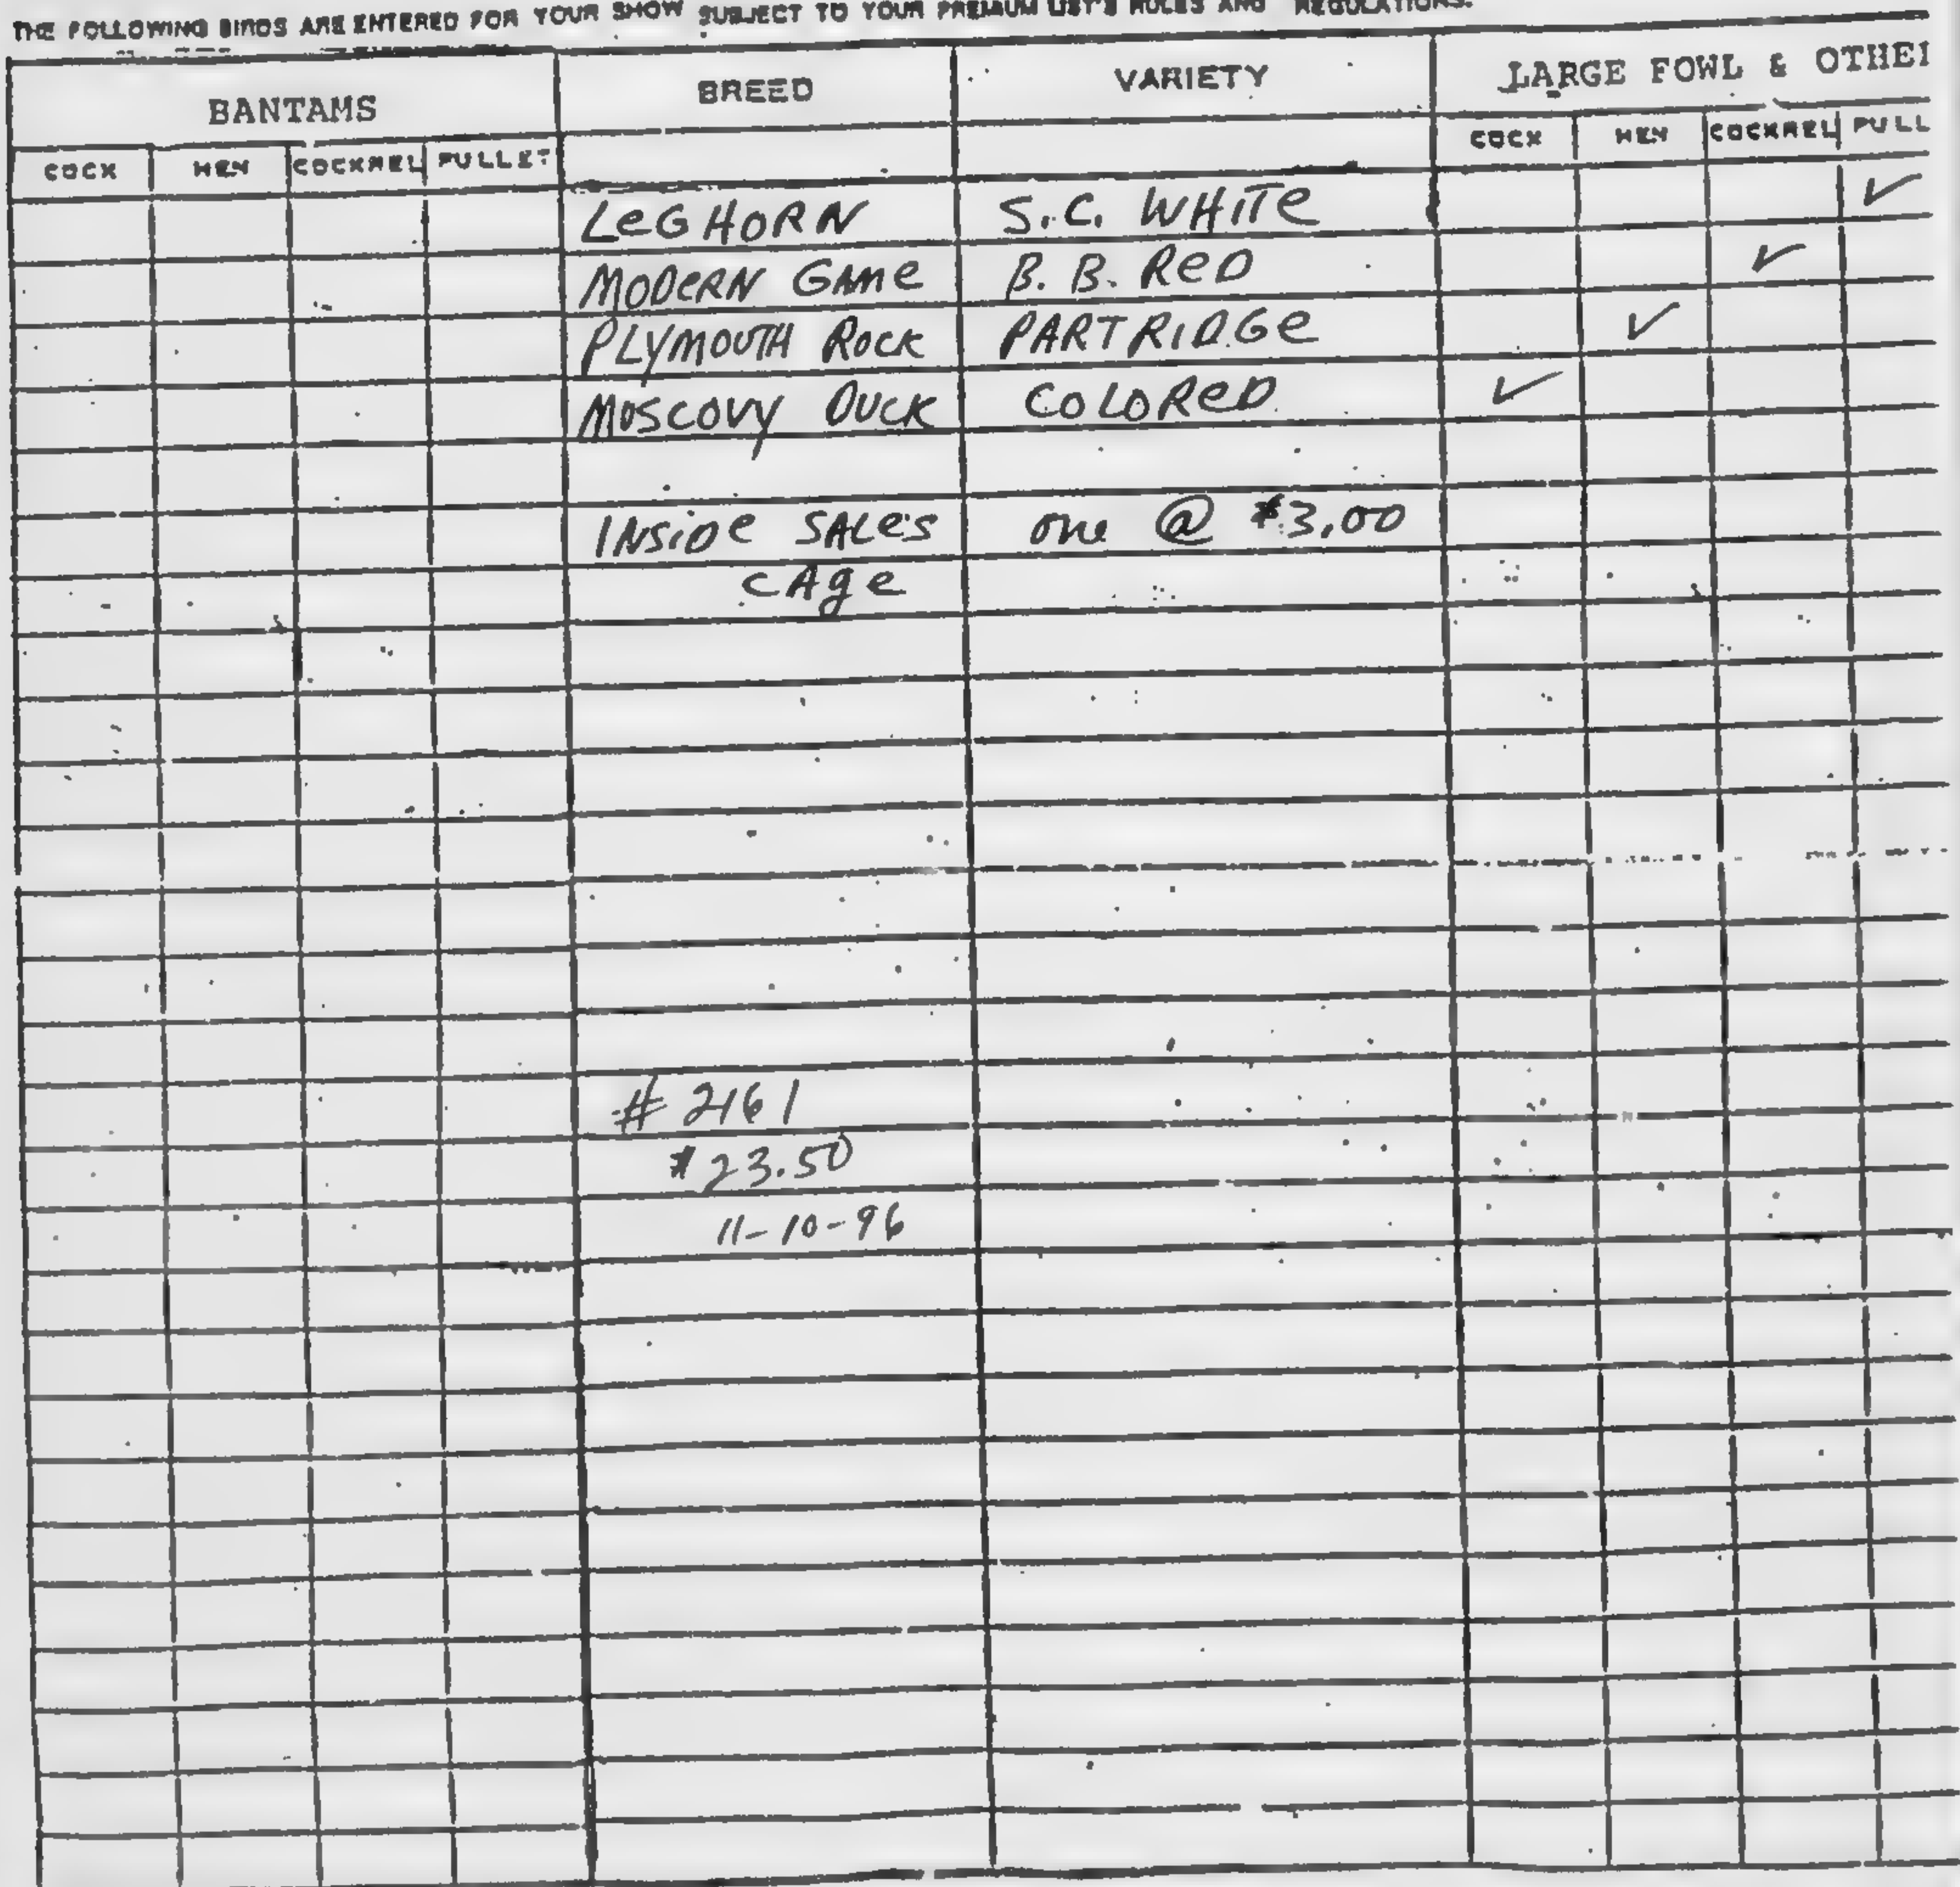 THE FOLLOWING BIRDS ARE ENTERED FOR YOUR SHOW SUBJECT TO YOUR PREMIUM LIST'S RULES AND REGULATIONS.
BANTAMS BREED VARIETY LARGE FOWL & OTHE
COCK HEN COCKREL PULLET COCK HEN COCKREL PULL
LEGHORN S.C. WHITE ✓
MODERN GAME B. B. RED ✓
PLYMOUTH ROCK PARTRIDGE ✓
MUSCOVY DUCK COLORED ✓
INSIDE SALES one @ $3.00
CAge
# 2161
$23.50
11-10-96